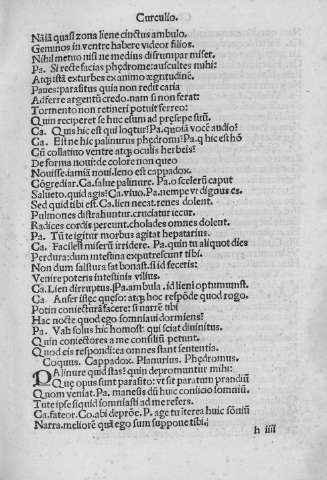 Curculio.
Nãiã quasi zona liene cinctus ambulo.
Geminos in ventre habere videor filios.
Nihil metuo nisi ne medius disrumpar miser.
Pa. Si recte facias phędrome: auscultes mihi:
Atqȝ istã exturbes ex animo ęgritudinẽ.
Paues: parasitus quia non redit caria
Adferre argentũ credo. nam si non ferat:
Tormento non retineri potuit ferreo:
Quin reciperet se huc esum ad pręsepe suñ.
Ca. Quis hic est qui loqtur? Pa. quoiã vocẽ audio?
Ca. Est ne hic palinurus phędromi? Pa. q hic est hõ
Cũ collatiuo ventre atqȝ oculis herbeis?
De forma noui: de colore non queo
Nouisse. iamiã noui. leno est cappadox.
Cõgrediar. Ca. salue palinure. Pa. o scelerũ caput
Salueto. quid agis? Ca. viuo. Pa. nempe vt dignus es.
Sed quid tibi est. Ca. lien necat. renes dolent.
Pulmones distrahuntur. cruciatur iecur.
Radices cordis pereunt. cholades omnes dolent.
Pa. Tũ te igitur morbus agitat hepatarius.
Ca. Facilest miserũ irridere. Pa. quin tu aliquot dies
Perdura: dum intestina exputrescunt tibi.
Non dum salsura sat bonast. si id feceris:
Venire poteris intestinis vilius.
Ca. Lien dirruptus. Pa. ambula. id lieni optumumst.
Ca. Aufer istęc quęso: atqȝ hoc respõde quod rogo.
Potin coniecturã facere: si narrẽ tibi
Hac nocte quod ego somniaui dormiens?
Pa. Vah solus hic homost: qui sciat diuinitus.
Quin coniectores a me consiliũ petunt.
Quod eis respondi: ea omnes stant sententia.
Coquus. Cappadox. Planurius. Phędromus.
PAlinure quid stas? quin depromuntur mihi:
Quę opus sunt parasito: vt sit paratum prandiũ
Quom veniat. Pa. manesis dũ huic conicio somniũ.
Tute ipse siquid somniasti ad me refers.
Ca. fateor. Co. abi deprõe. P. age tu iterea huic sõniũ
Narra. meliorẽ quã ego sum suppone tibi.
h iiii